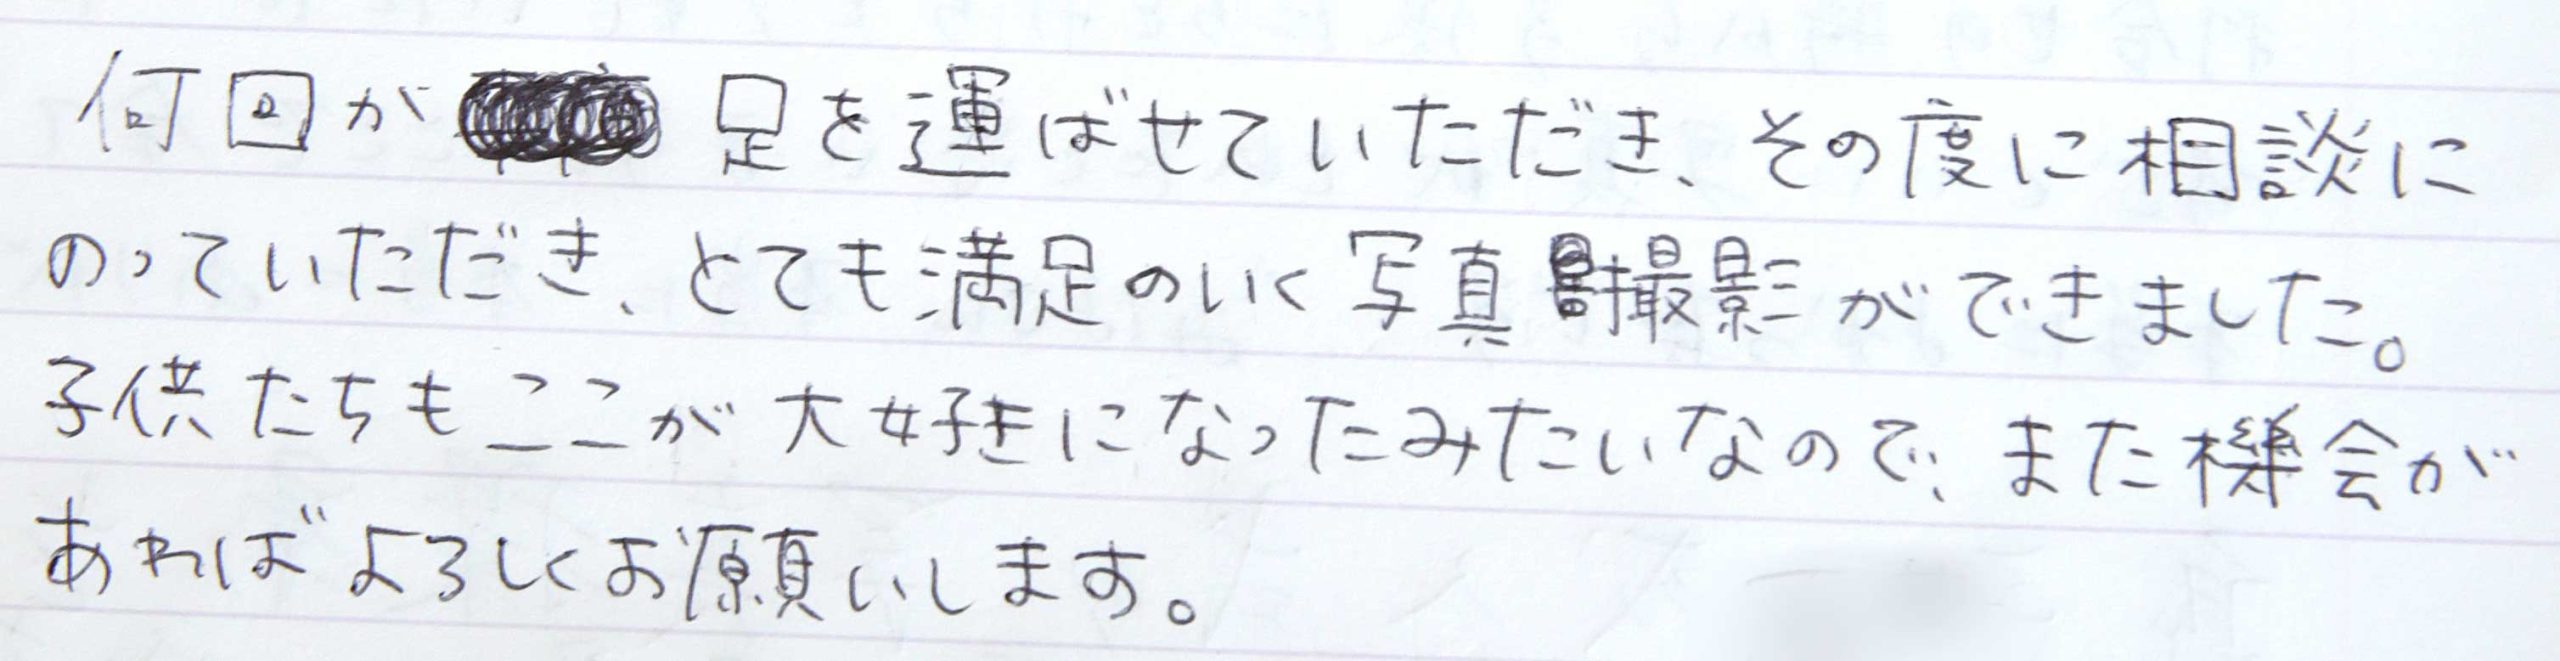 何回が足を運ばせていただき、その度に相談に
のっていただき、とても満足のいく写真撮影ができました。
子供たちもここが大好きになったみたいなので、また機会が
あればよろしくお願いします。